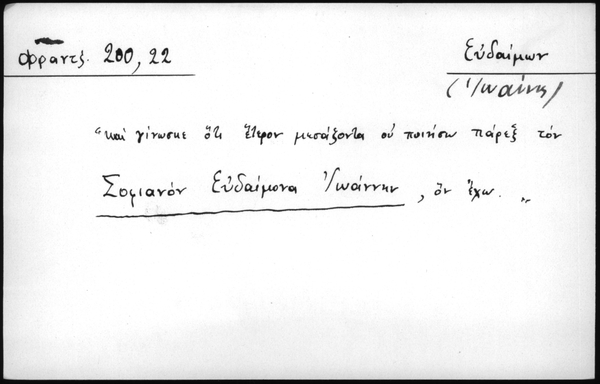 Φραντζ. 200, 22
Εὐδαίμων
(Ἰωάννης)
“καὶ γίνωσκε ὅτι ἕτερον μεσάζοντα οὐ ποιήσω πάρεξ τὸν
Σοφιανόν Εὐδαίμονα Ἰωάννην, ὃν ἔχω.„